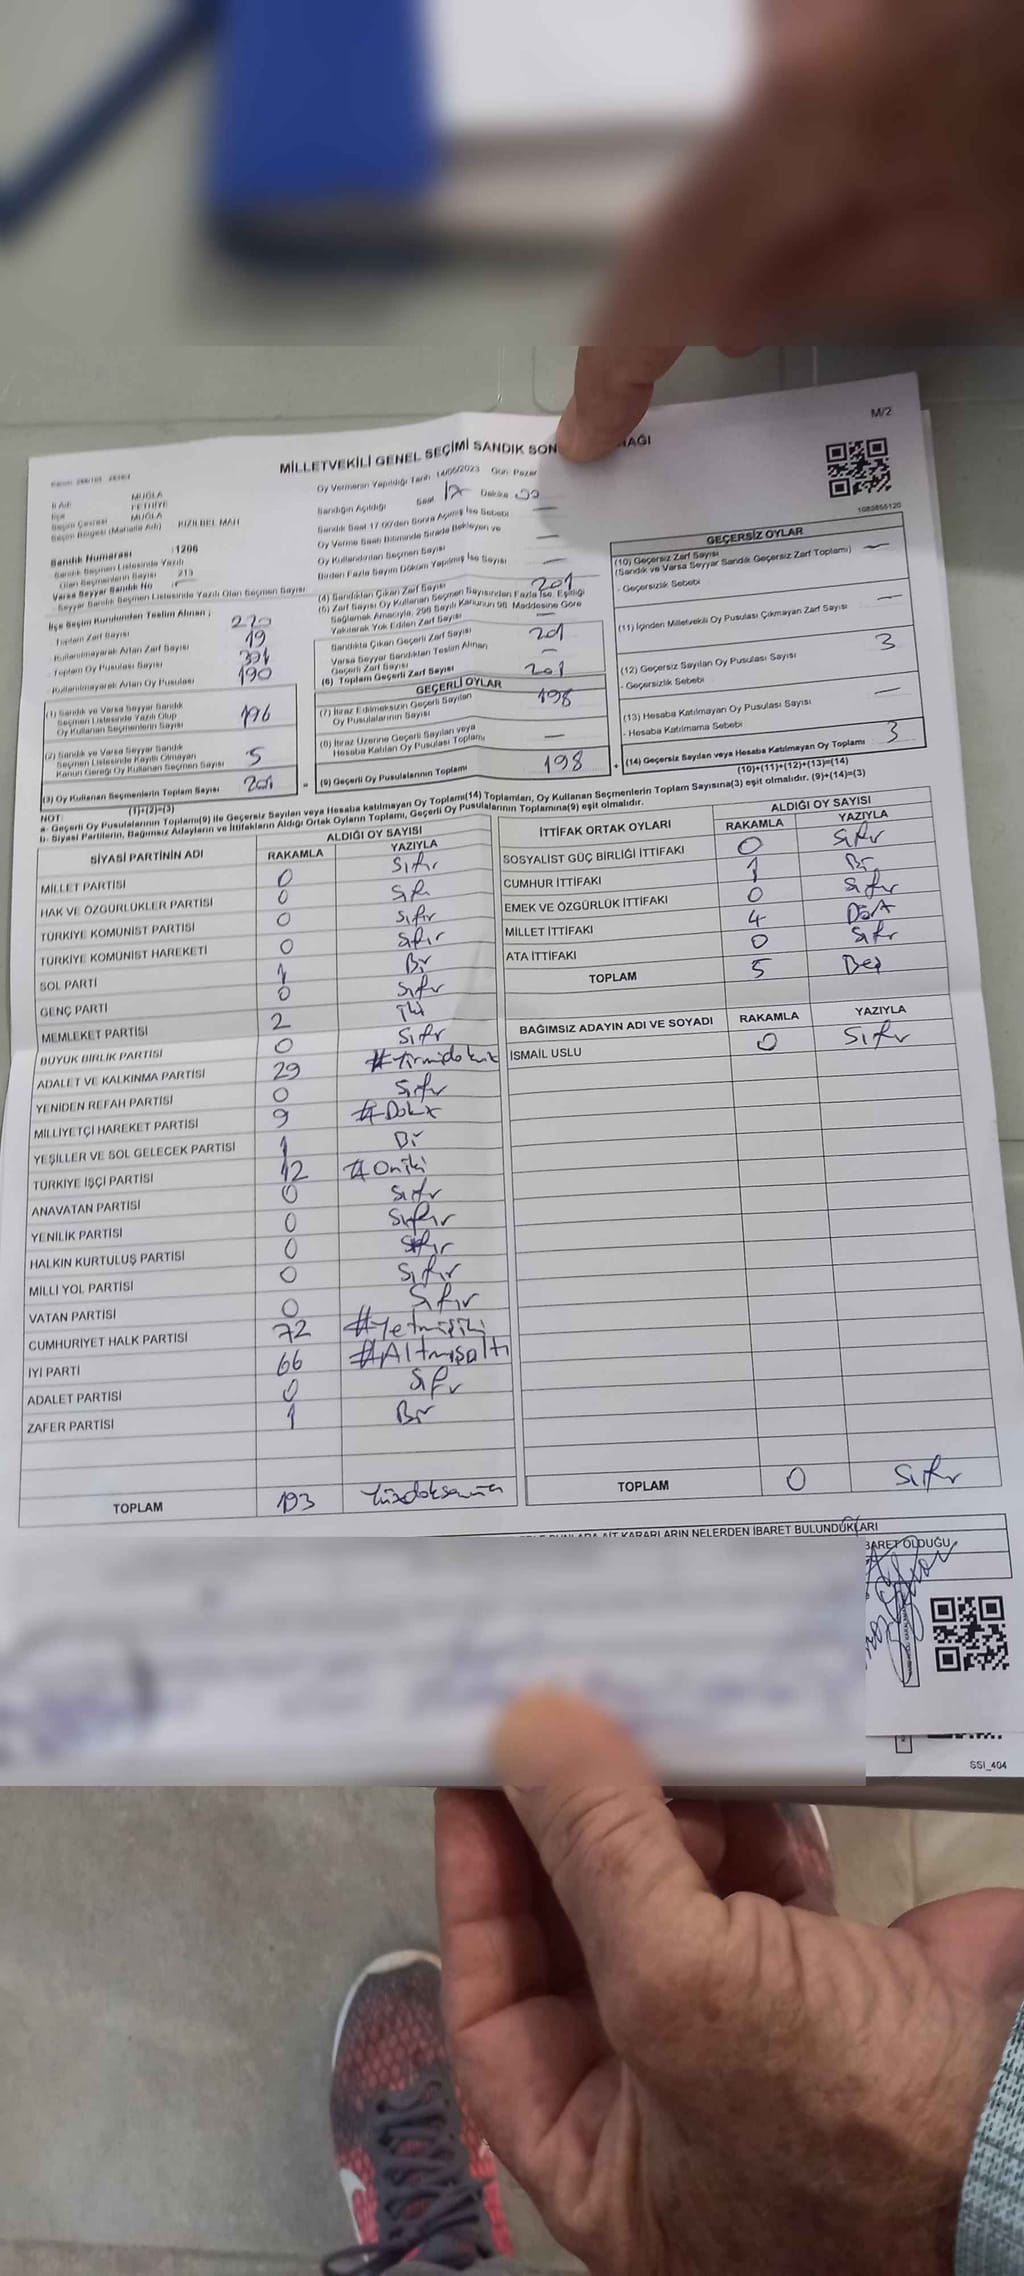 M/2
MİLLETVEKİLİ GENEL SEÇİMİ SANDIK SON
AĞI
1083855120
İli Adı MUĞLA
İlçe FETHİYE
Seçim Çevresi MUĞLA
Seçim Bölgesi (Mahalle Adı) KIZILBEL MAH
Sandık Numarası :1206
Sandık Seçmen Listesinde Yazılı
Olan Seçmenlerin Sayısı
Varsa Seyyar Sandık No
- Seyyar Sandık Seçmen Listesinde Yazılı Olan Seçmen Sayısı
İlçe Seçim Kurulundan Teslim Alınan ;
- Toplam Zarf Sayısı 220
- Kullanılmayarak Artan Zarf Sayısı 19
- Toplam Oy Pusulası Sayısı
- Kullanılmayarak Artan Oy Pusulası 190
(1) Sandık ve Varsa Seyyar Sandık
Seçmen Listesinde Yazılı Olup
Oy Kullanan Seçmenlerin Sayısı 196
(2) Sandık ve Varsa Seyyar Sandık
Seçmen Listesinde Kayıtlı Olmayan
Kanun Gereği Oy Kullanan Seçmen Sayısı 5
(3) Oy Kullanan Seçmenlerin Toplam Sayısı 201
(1)+(2)=(3)
Oy Vermenin Yapıldığı Tarih 14/05/2023 Gün Pazar
Sandığın Açıldığı Saat 17 Dakika 00
Sandık Saat 17.00'den Sonra Açılmış İse Sebebi —
Oy Verme Saati Bitiminde Sırada Bekleyen ve
Oy Kullandırılan Seçmen Sayısı —
Birden Fazla Sayım Döküm Yapılmış İse Sayısı —
(4) Sandıktan Çıkan Zarf Sayısı 201
(5) Zarf Sayısı Oy Kullanan Seçmen Sayısından Fazla İse, Eşitliği
Sağlamak Amacıyla, 298 Sayılı Kanunun 98. Maddesine Göre
Yakılarak Yok Edilen Zarf Sayısı —
Sandıkta Çıkan Geçerli Zarf Sayısı 201
Varsa Seyyar Sandıktan Teslim Alınan
Geçerli Zarf Sayısı —
(6) Toplam Geçerli Zarf Sayısı 201
GEÇERLİ OYLAR
(7) İtiraz Edilmeksizin Geçerli Sayılan
Oy Pusulalarının Sayısı 198
(8) İtiraz Üzerine Geçerli Sayılan veya
Hesaba Katılan Oy Pusulası Toplamı —
(9) Geçerli Oy Pusulalarının Toplamı 198
GEÇERSİZ OYLAR
(10) Geçersiz Zarf Sayısı
(Sandık ve Varsa Seyyar Sandık Geçersiz Zarf Toplamı) —
- Geçersizlik Sebebi
(11) İçinden Milletvekili Oy Pusulası Çıkmayan Zarf Sayısı —
(12) Geçersiz Sayılan Oy Pusulası Sayısı 3
- Geçersizlik Sebebi
(13) Hesaba Katılmayan Oy Pusulası Sayısı —
- Hesaba Katılmama Sebebi
(14) Geçersiz Sayılan veya Hesaba Katılmayan Oy Toplamı 3
(10)+(11)+(12)+(13)=(14)
NOT:
a- Geçerli Oy Pusulalarının Toplamı(9) ile Geçersiz Sayılan veya Hesaba katılmayan Oy Toplamı(14) Toplamları, Oy Kullanan Seçmenlerin Toplam Sayısına(3) eşit olmalıdır. (9)+(14)=(3)
b- Siyasi Partilerin, Bağımsız Adayların ve İttifakların Aldığı Ortak Oyların Toplamı, Geçerli Oy Pusulalarının Toplamına(9) eşit olmalıdır.
SİYASİ PARTİNİN ADI ALDIĞI OY SAYISI
RAKAMLA YAZIYLA
MİLLET PARTİSİ 0 Sıfır
HAK VE ÖZGÜRLÜKLER PARTİSİ 0 Sıfır
TÜRKİYE KOMÜNİST PARTİSİ 0 Sıfır
TÜRKİYE KOMÜNİST HAREKETİ 0 Sıfır
SOL PARTİ 1 Bir
GENÇ PARTİ 0 Sıfır
MEMLEKET PARTİSİ 2 İki
BÜYÜK BİRLİK PARTİSİ 0 Sıfır
ADALET VE KALKINMA PARTİSİ 29 #Yirmidokuz
YENİDEN REFAH PARTİSİ 0 Sıfır
MİLLİYETÇİ HAREKET PARTİSİ 9 #Dokuz
YEŞİLLER VE SOL GELECEK PARTİSİ 1 Bir
TÜRKİYE İŞÇİ PARTİSİ 12 #Oniki
ANAVATAN PARTİSİ 0 Sıfır
YENİLİK PARTİSİ 0 Sıfır
HALKIN KURTULUŞ PARTİSİ 0 Sıfır
MİLLİ YOL PARTİSİ 0 Sıfır
VATAN PARTİSİ 0 Sıfır
CUMHURİYET HALK PARTİSİ 72 #Yetmişiki
İYİ PARTİ 66 #Altmışaltı
ADALET PARTİSİ 0 Sıfır
ZAFER PARTİSİ 1 Bir
TOPLAM 193 Yüzdoksanüç
İTTİFAK ORTAK OYLARI ALDIĞI OY SAYISI
RAKAMLA YAZIYLA
SOSYALİST GÜÇ BİRLİĞİ İTTİFAKI 0 Sıfır
CUMHUR İTTİFAKI 1 Bir
EMEK VE ÖZGÜRLÜK İTTİFAKI 0 Sıfır
MİLLET İTTİFAKI 4 Dört
ATA İTTİFAKI 0 Sıfır
TOPLAM 5 Beş
BAĞIMSIZ ADAYIN ADI VE SOYADI RAKAMLA YAZIYLA
İSMAİL USLU 0 Sıfır
TOPLAM 0 Sıfır
KARARLARIN NELERDEN İBARET BULUNDUKLARI
BARET OLDUĞU
SSI_404